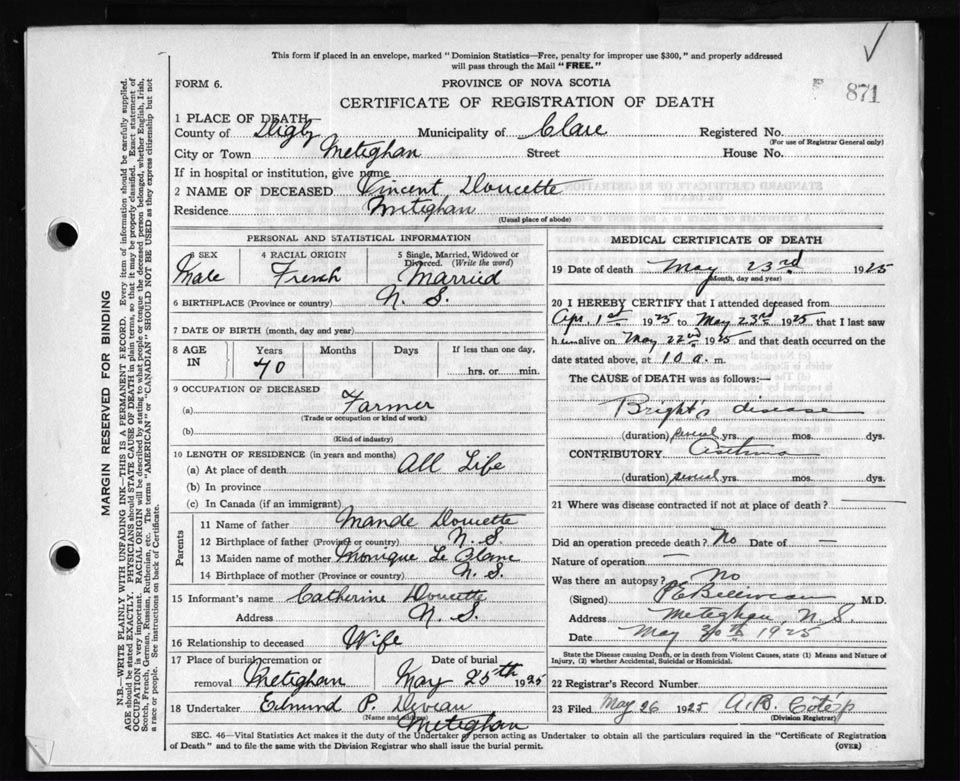 This form if placed in an envelope, marked "Dominion Statistics—Free, penalty for improper use $300," and properly addressed
will pass through the Mail "FREE."
FORM 6.
PROVINCE OF NOVA SCOTIA
871
CERTIFICATE OF REGISTRATION OF DEATH
1 PLACE OF DEATH
County of Digby Municipality of Clare Registered No.
(For use of Registrar General only)
City or Town Meteghan Street House No.
If in hospital or institution, give name
2 NAME OF DECEASED Vincent Doucette
Residence Meteghan
(Usual place of abode)
PERSONAL AND STATISTICAL INFORMATION
SEX 4 RACIAL ORIGIN 5 Single, Married, Widowed or
Divorced. (Write the word)
Male French Married
6 BIRTHPLACE (Province or country) N. S.
7 DATE OF BIRTH (month, day and year)
8 AGE IN Years Months Days If less than one day,
70 hrs. or min.
9 OCCUPATION OF DECEASED
(a) Farmer
(Trade or occupation or kind of work)
(b)
(Kind of industry)
10 LENGTH OF RESIDENCE (in years and months)
(a) At place of death All Life
(b) In province
(c) In Canada (if an immigrant)
Parents
11 Name of father Mande Doucette
12 Birthplace of father (Province or country) N. S.
13 Maiden name of mother Monique Le Blanc
14 Birthplace of mother (Province or country) N. S.
15 Informant's name Catherine Doucette
Address N. S.
16 Relationship to deceased Wife
17 Place of burial, cremation or Date of burial
removal Meteghan May 25th 1925
18 Undertaker Edmund P.
(Name and address)
Meteghan
MEDICAL CERTIFICATE OF DEATH
19 Date of death May 23rd 1925
(Month, day and year)
20 I HEREBY CERTIFY that I attended deceased from
Apr. 1st 1925 to May 23rd 1925 that I last saw
him alive on May 22nd 1925 and that death occurred on the
date stated above, at 10 a. m.
The CAUSE of DEATH was as follows:—
Bright's disease
(duration) several yrs. mos. dys.
CONTRIBUTORY Asthma
(duration) several yrs. mos. dys.
21 Where was disease contracted if not at place of death? —
Did an operation precede death? No Date of —
Nature of operation —
Was there an autopsy? No
(Signed) Belliveau M.D.
Address Meteghan, N. S.
Date May 30th 1925
State the Disease causing Death, or in death from Violent Causes, state (1) Means and Nature of
Injury, (2) whether Accidental, Suicidal or Homicidal.
22 Registrar's Record Number
23 Filed May 26 1925 A. B.
(Division Registrar)
SEC. 46—Vital Statistics Act makes it the duty of the Undertaker or person acting as Undertaker to obtain all the particulars required in the "Certificate of Registration
of Death" and to file the same with the Division Registrar who shall issue the burial permit.
(OVER)
MARGIN RESERVED FOR BINDING
N.B.—WRITE PLAINLY WITH UNFADING INK—THIS IS A PERMANENT RECORD. Every item of information should be carefully supplied.
AGE should be stated EXACTLY. PHYSICIANS should STATE CAUSE OF DEATH in plain terms, so that it may be properly classified. Exact statement of
OCCUPATION is very important. RACIAL ORIGIN will be described by stating to what people or tongue the deceased person belonged, whether English, Irish,
Scotch, French, German, Russian, Ruthenian, etc. The terms "AMERICAN" or "CANADIAN" SHOULD NOT BE USED as they express citizenship but not
a race or people. See instructions on back of Certificate.